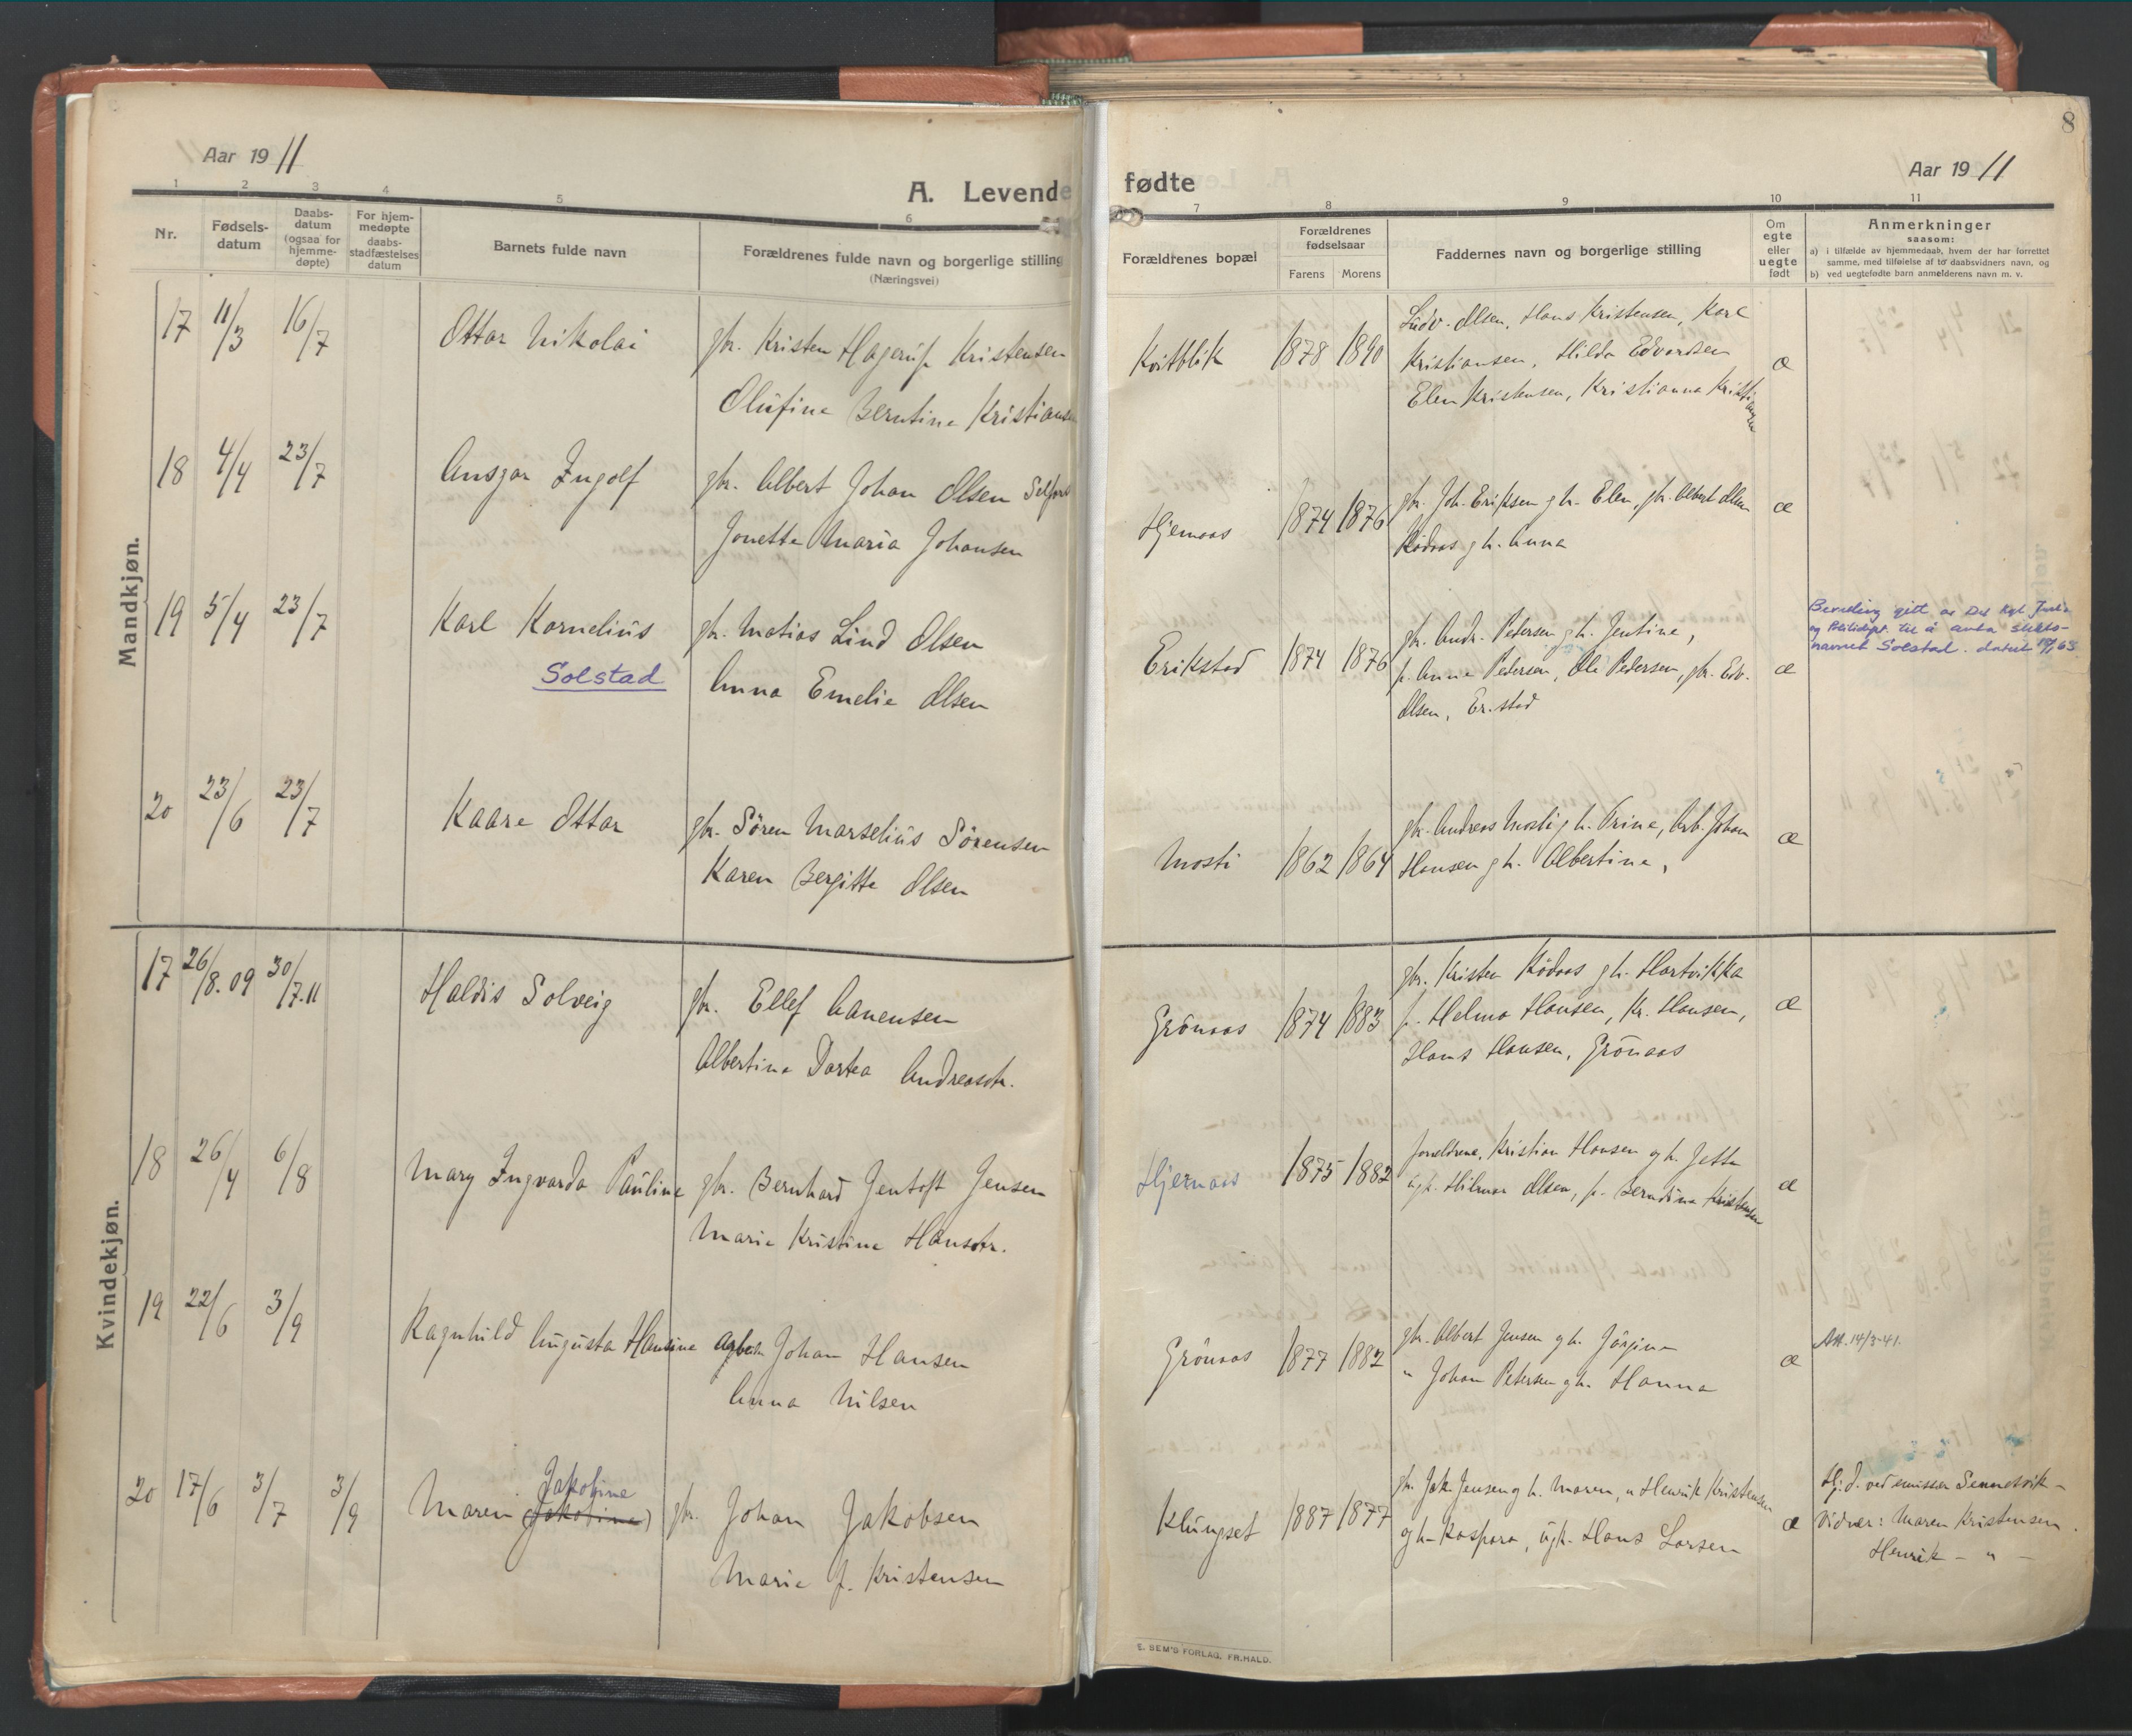 8
Aar 1911
A. Levende
fødte
Aar 1911
1 2 3 4 5 6 7 8 9 10 11
Nr.
Fødsels-
datum
Daabs-
datum
(ogsaa for
hjemme-
døpte)
For hjem-
medøpte
daabs-
stadfæstelses
datum
Barnets fulde navn
Forældrenes fulde navn og borgerlige stilling
(Næringsvei)
Forældrenes bopæl
Forældrenes
fødselsaar
Farens Morens
Faddernes navn og borgerlige stilling
Om
egte
eller
uegte
født
Anmerkninger
saasom:
a) i tilfælde av hjemmedaab, hvem der har forrettet
samme, med tilføielse af to daabsvidners navn, og
b) ved uegtefødte barn anmelderens navn m. v.
Mandkjøn.
17 11/3 16/7 Ottar Nikolai gbr. Kristen Hagerup Kristensen
Olufine Berntine Kristians
Kvitblik 1878 1890 Ludv. Olsen, Hans Kristensen, Karl
Kristiansen, Hilda Edvardsen
Elen Kristensen, Kristianna Kristiansen
æ
18 4/4 23/7 Ansgar Ingolf gbr. Albert Johan Olsen Selfors
Jonette Maria Johansen
Hjemaas 1874 1876 gbr. Joh. Eriksen g h. Elen, gbr. Albert Olsen
Rødaas g h. Anna
æ
19 5/4 23/7 Karl Kornelius gbr. Matias Lind Olsen
Solstad Anna Emelie Olsen
Erikstad 1874 1876 gbr. Andr. Pedersen g h. Jentine,
p. Anna Pedersen, Ole Pedersen, gbr. Edv.
Olsen, Er.stad
æ
Beviling gitt av Det Kgl. Just.-
og Politidept. til å anta slekts-
navnet Solstad. datert
20 23/6 23/7 Kaare Ottar gbr. Sören Marselius Sörensen
Karen Bergitte Olsen
Mosti 1862 1864 gbr. Andreas Mosti g h. Trine, Arb. Johan
Hansen g h. Albertine,
æ
Kvindekjøn.
17 26/8.09 30/7.11 Haldis Solveig gbr. Ellef Aanensen
Albertine Dortea Andreasdtr.
Grönaas 1874 1883 gbr. Kristen Rödaas g h. Hartvikka
p. Helma Hansen, Kr. Hansen,
Hans Hansen, Grönaas
æ
18 26/4 6/8 Mary Ingvarda Pauline gbr. Bernhard Jentoft Jensen
Marie Kristine Hansdtr.
Hjernaas 1875 1882 foreldrene, Kristian Hansen g h. Jetta
ugk. Hilmar Olsen, p. Berndine Kristensen
æ
19 22/6 3/9 Ragnhild Augusta Hansine Arbeid. Johan Hansen
Anna Nilsen
Grönaas 1877 1882 gbr. Albert Jensen g h. Jörgine
" Johan Petersen g h. Hanna
æ
Att. 14/3-41.
20 17/6 3/7 3/9 Maren (Jakobine) Jakobine gbr. Johan Jakobsen
Marie f. Kristensen
Klungset 1887 1877 gbr. Jak. Jensen g h. Maren, " Henrik Kristensen
g h. Kaspara, ugk. Hans Larsen
æ
Hj. d. ved emissær Sennesvik -
Vidner: Maren Kristensen.
Henrik - " -
E. SEM'S FORLAG, FR.HALD.